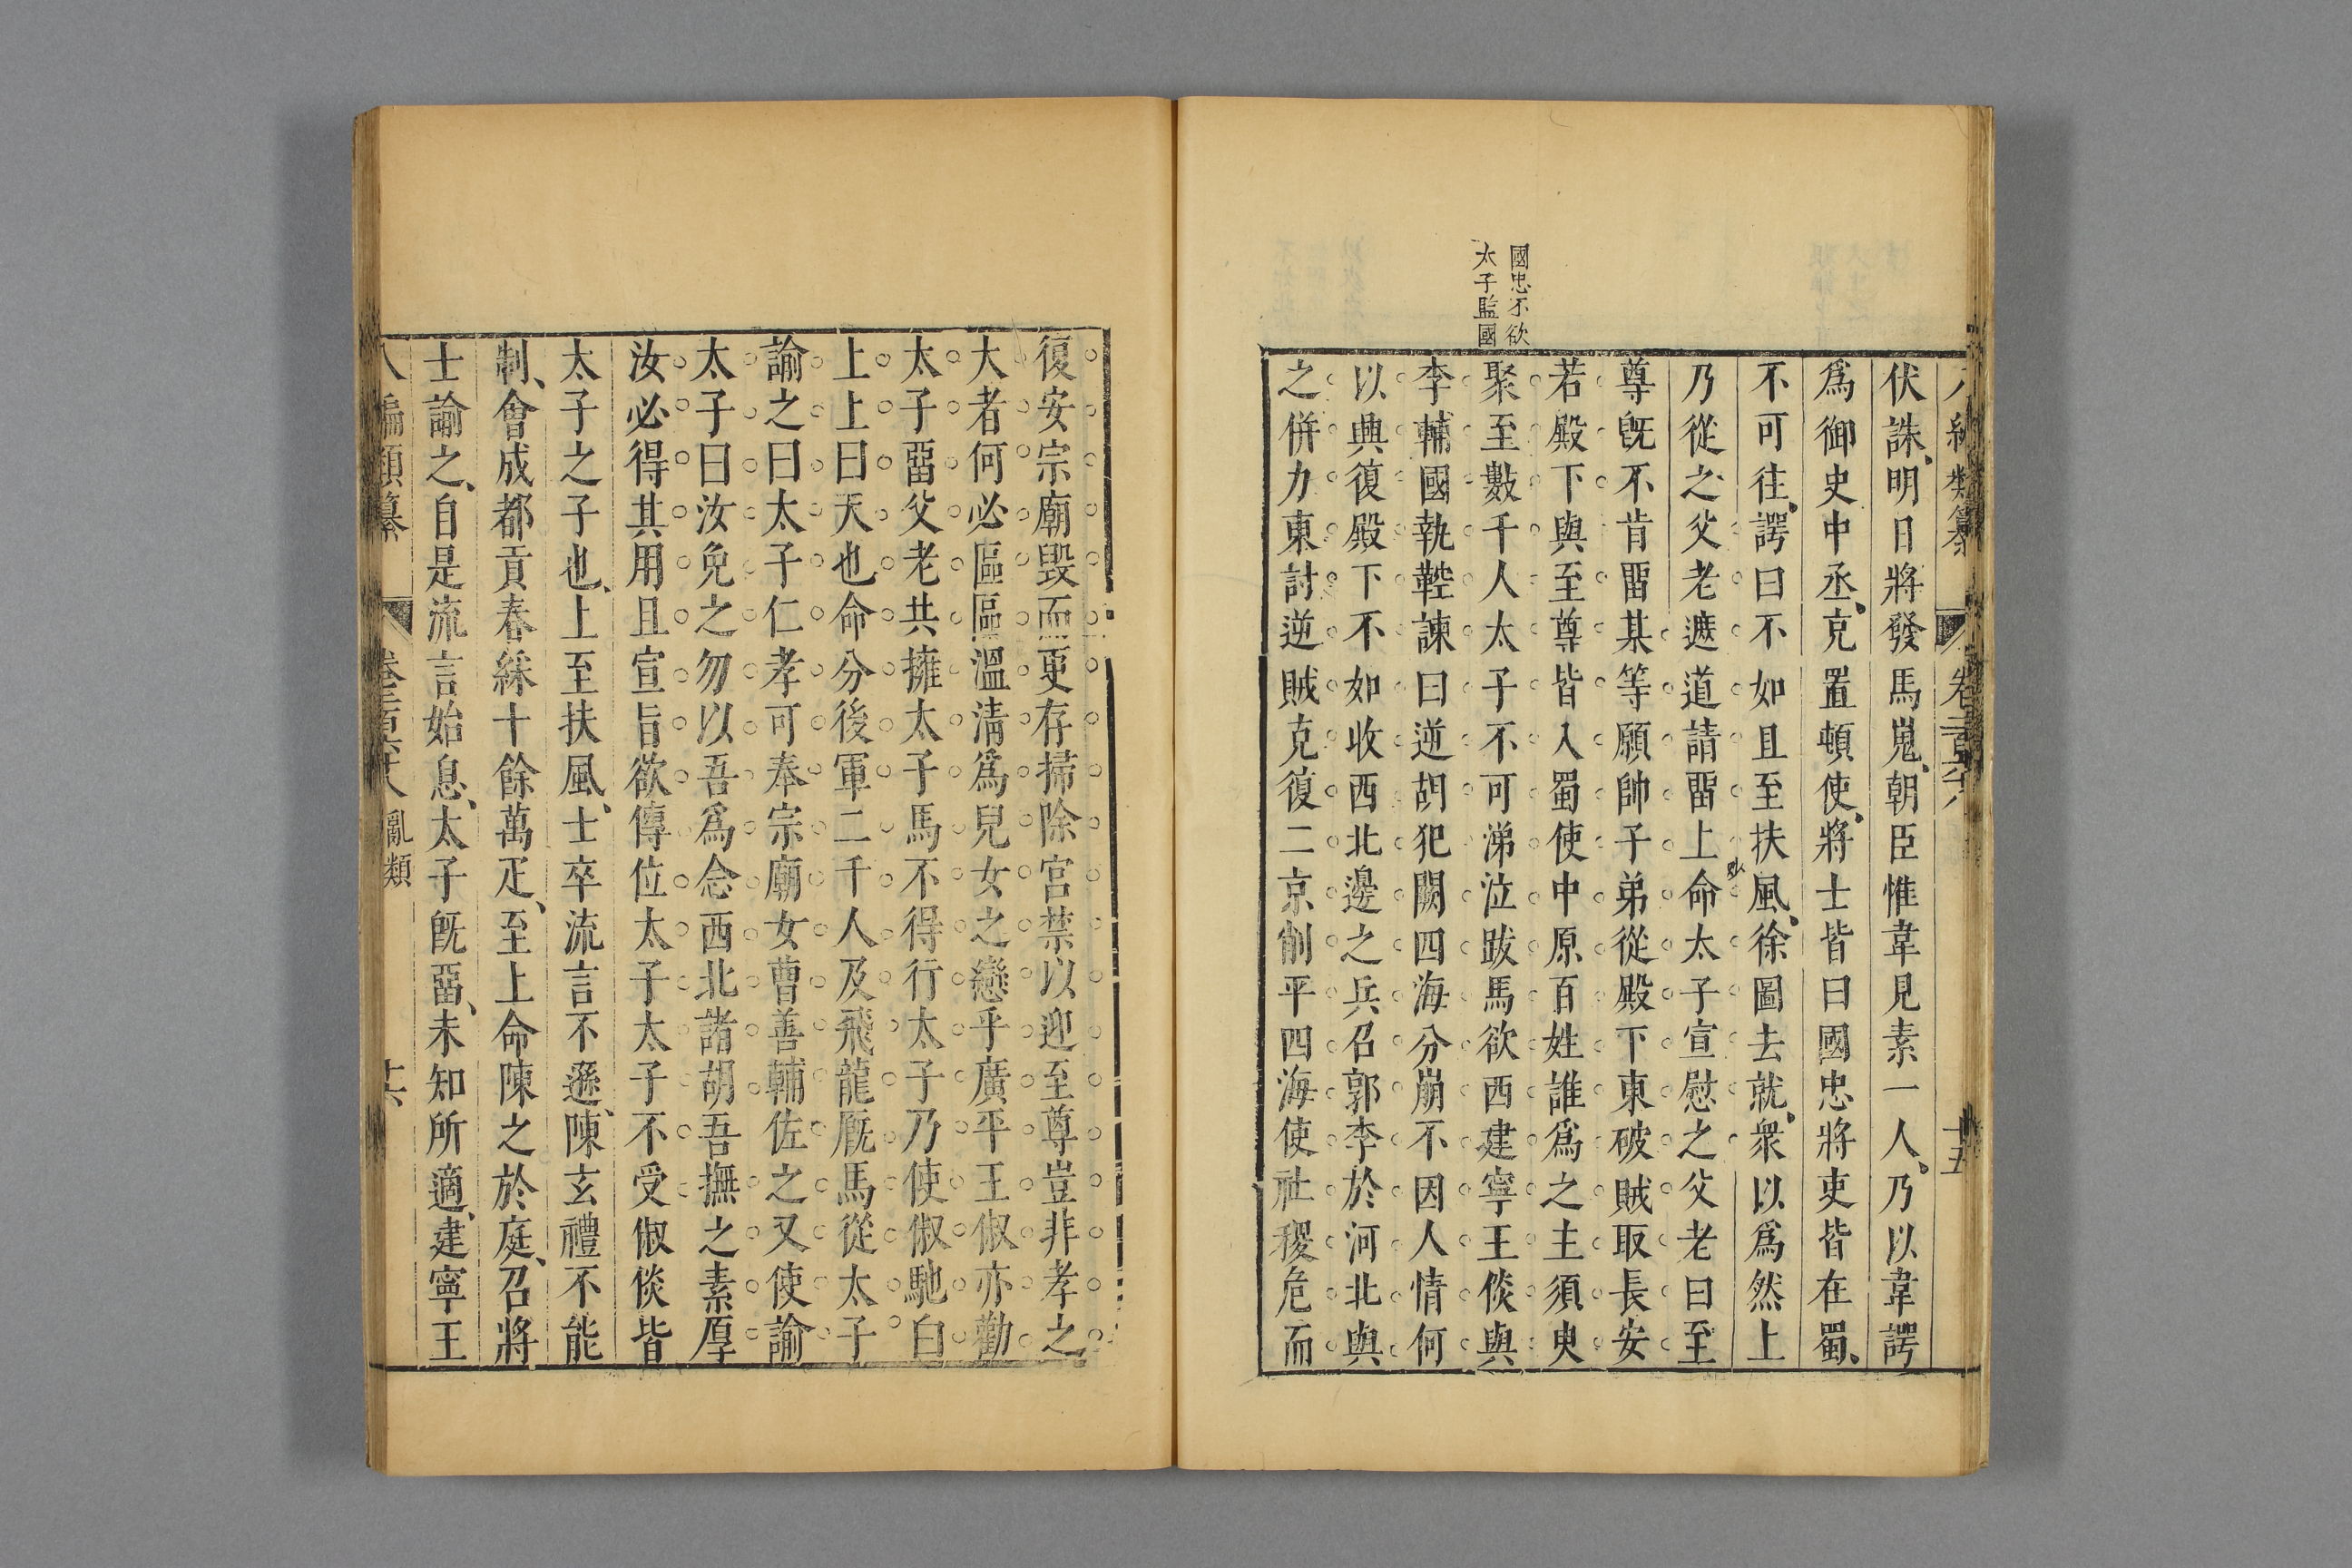 國忠不欲
太子監國
伏誅明日將發馬嵬朝臣惟韋見素一人乃以韋諤
爲御史中丞克置頓使將士皆曰國忠將吏皆在蜀
不可往諤曰不如且至扶風徐圖去就衆以爲然上
乃從之父老遮道請畱上命太子宣慰之父老曰至
尊旣不肯畱某等願帥子弟從殿下東破賊取長安
若殿下與至尊皆入蜀使中原百姓誰爲之主須臾
聚至數千人太子不可涕泣跋馬欲西建寧王倓與
李輔國執鞚諫曰逆胡犯闕四海分崩不因人情何
以興復殿下不如收西北邊之兵召郭李於河北與
之併力東討逆賊克復二京削平四海使社稷危而
復安宗廟毀而更存掃除宮禁以迎至尊豈非孝之
大者何必區區溫凊爲兒女之戀乎廣平王俶亦勸
太子畱父老共擁太子馬不得行太子乃使俶馳白
上上曰天也命分後軍二千人及飛龍厩馬從太子
諭之曰太子仁孝可奉宗廟女曹善輔佐之又使諭
太子曰汝免之勿以吾爲念西北諸胡吾撫之素厚
汝必得其用且宣旨欲傳位太子太子不受俶倓皆
太子之子也上至扶風士卒流言不遜陳玄禮不能
制會成都貢春綵十餘萬疋至上命陳之於庭召將
士諭之自是流言始息太子旣畱未知所適建寧王